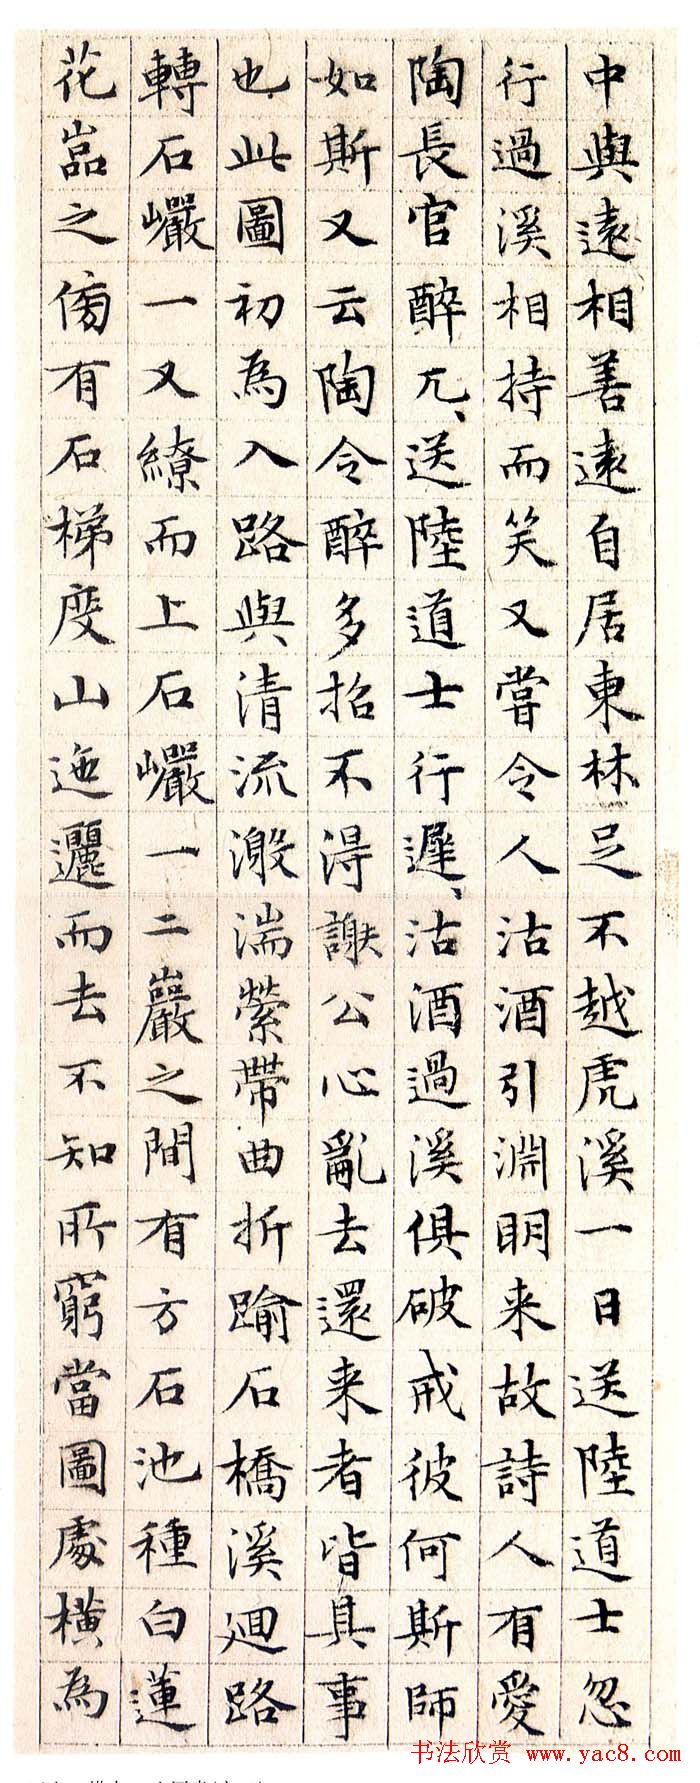 中與遠相善遠自居東林足不越虎溪一日送陸道士忽
行過溪相持而笑又嘗令人沽酒引淵明来故詩人有愛
陶長官醉兀、送陸道士行遲、沽酒過溪俱破戒彼何斯師
如斯又云陶令醉多招不得謝公心亂去還来者皆其事
也此圖初為入路與清流激湍縈帶曲折踰石橋溪廻路
轉石巗一又繚而上石巗一二巖之間有方石池種白蓮
花嵓之傍有石梯度山迤邐而去不知所窮當圖處横為
书法欣赏 www.yac8.com